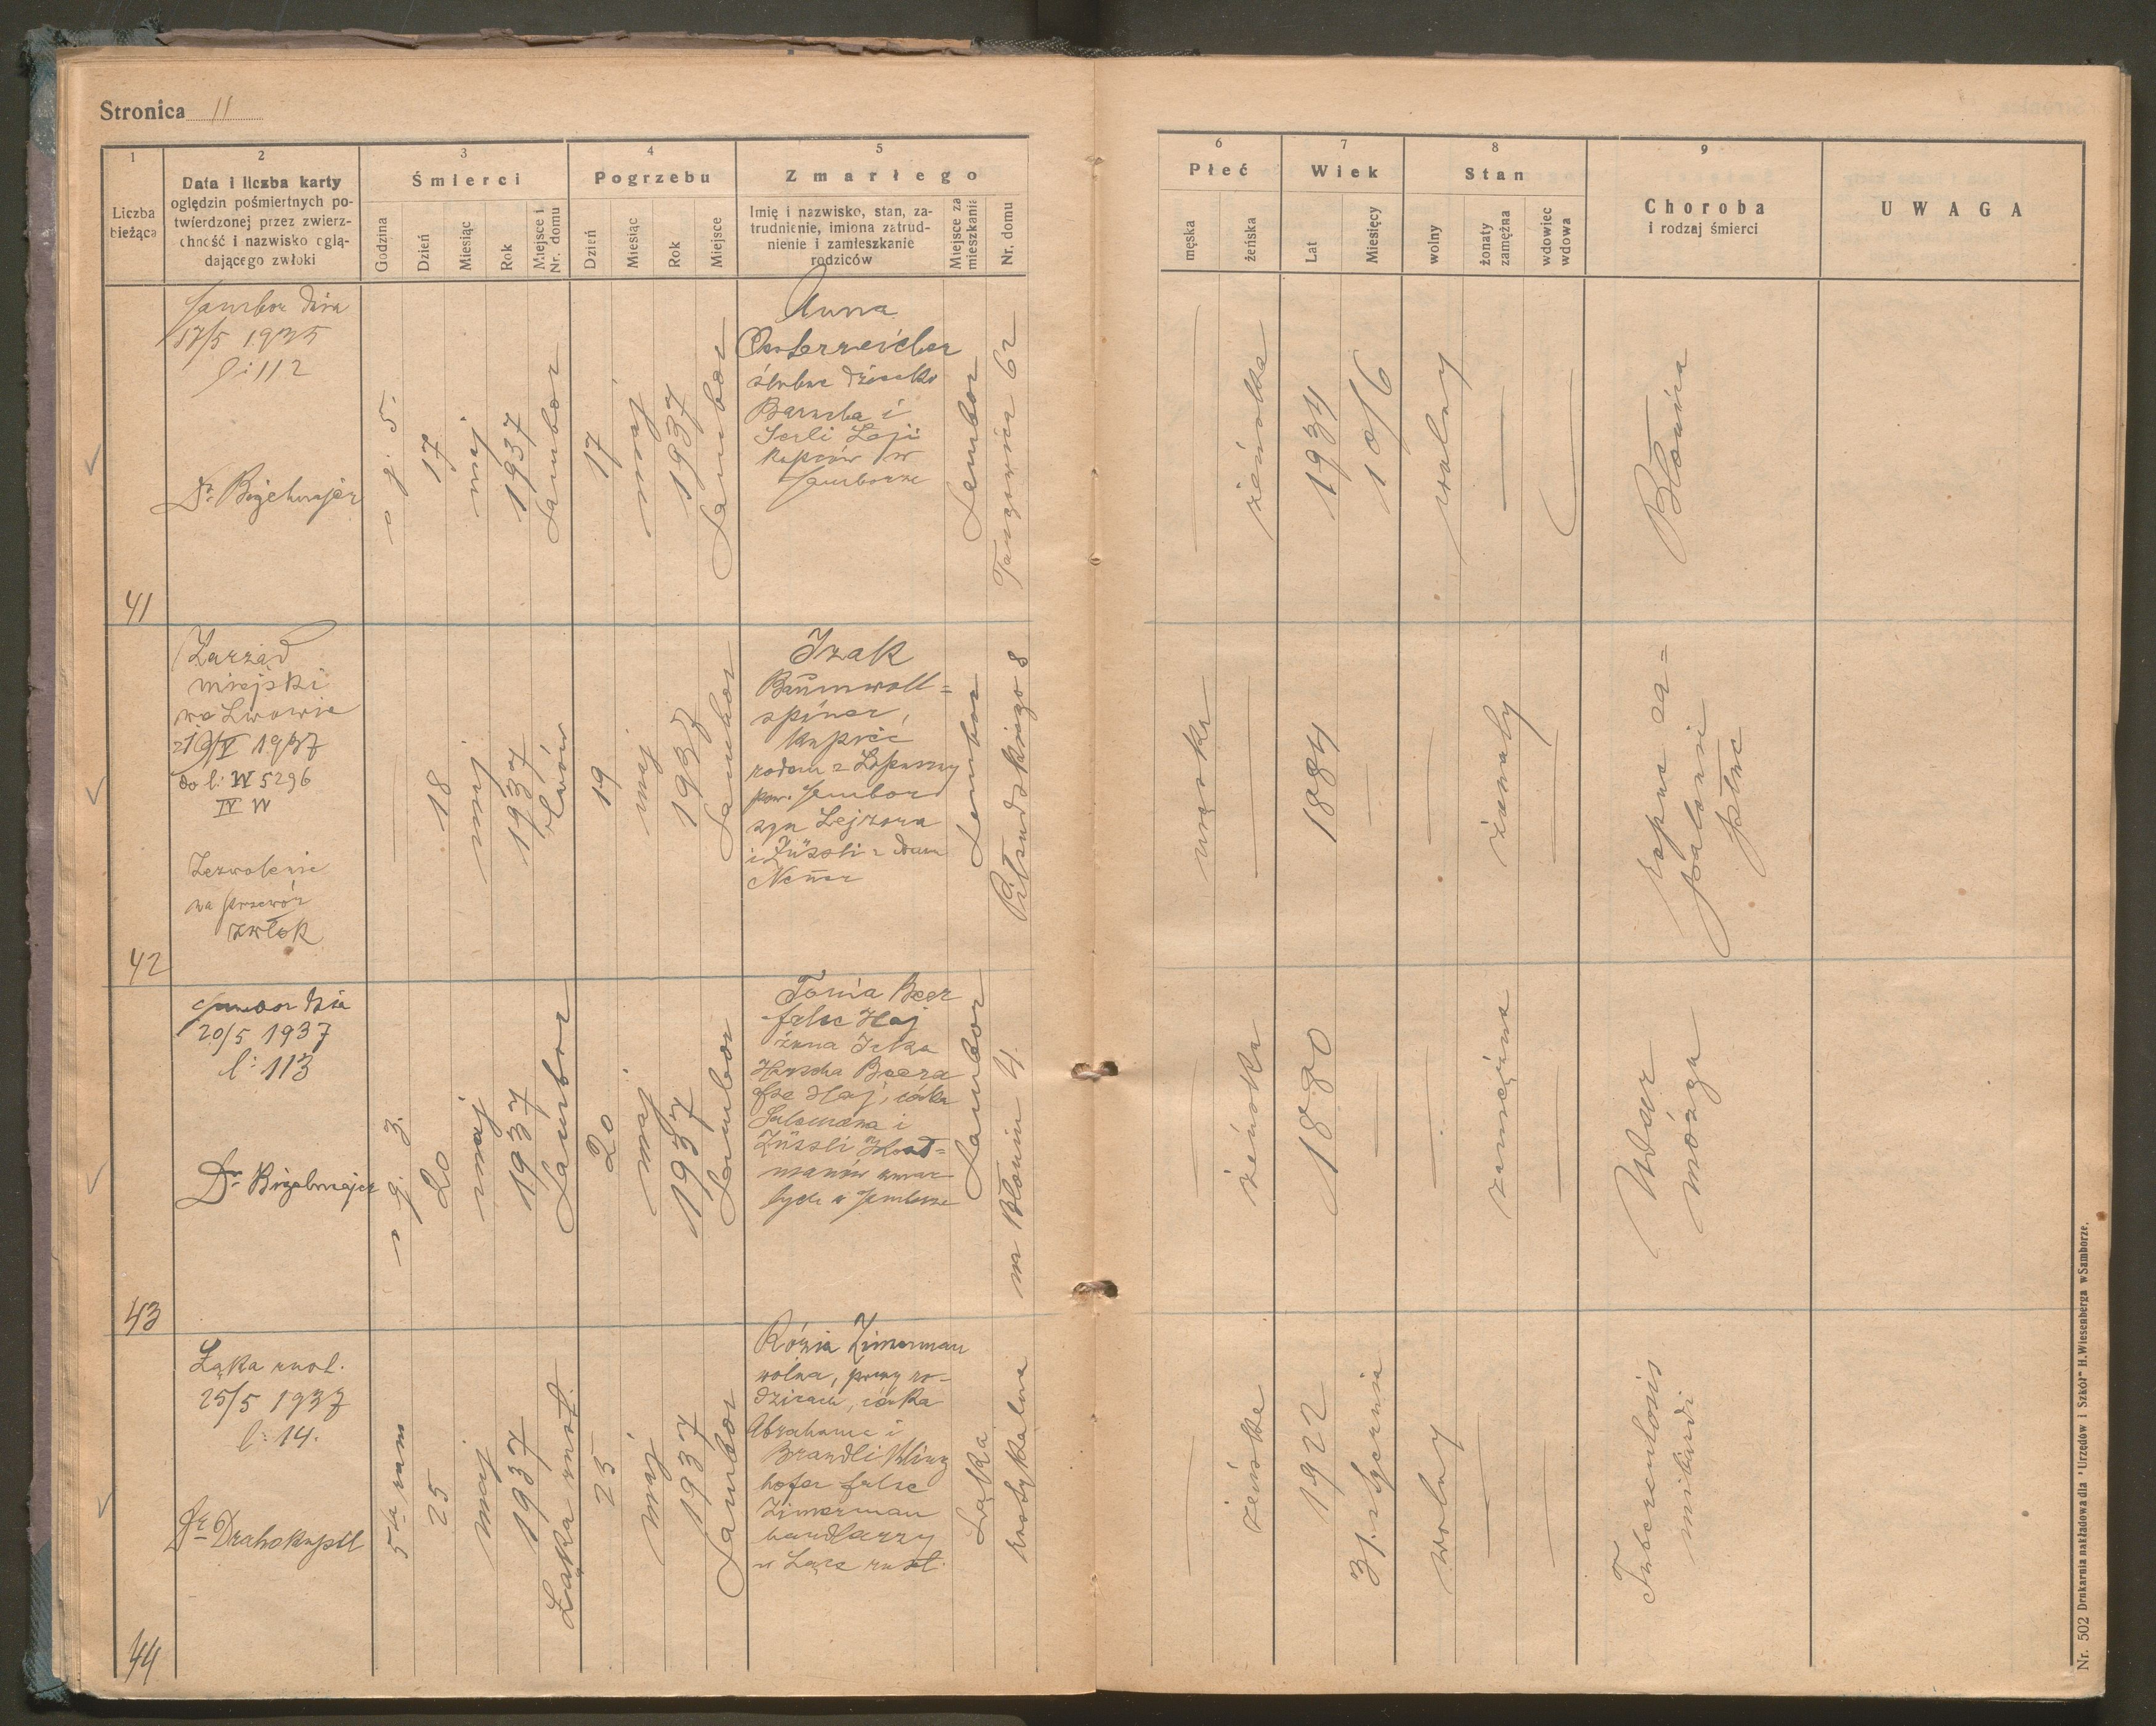 Stronica 11
1
Liczba
bieżąca
2
Data i liczba karty
oględzin pośmiertnych po-
twierdzonej przez zwierz-
chność i nazwisko oglą-
dającego zwłoki
3
Śmierci
Godzina
Dzień
Miesiąc
Rok
Miejsce i
Nr. domu
4
Pogrzebu
Dzień
Miesiąc
Rok
Miejsce
5
Zmarłego
Imię i nazwisko, stan, za-
trudnienie, imiona zatrud-
nienie i zamieszkanie
rodziców
Miejsce za
mieszkania
Nr. domu
6
Płeć
męska
żeńska
7
Wiek
Lat
Miesięcy
8
Stan
wolny
żonaty
zamężna
wdowiec
wdowa
9
Choroba
i rodzaj śmierci
UWAGA
41
Sambor dnia
17/5 1935
l: 112
Dr.
o g. 5.
17
maj
1937
Sambor
17
maj
1937
Sambor
Anna
Oesterreicher
ślubne dziecko
Barucha i
Serli Laji
kupców w
Samborze
Sambor
Targowica 62
żeńska
1934
10/6
wolny
Błonica
42
Zarząd
miejski
we Lwowie
z 19/V 1937
do l: W 5296
IV W
Zezwolenie
na przewóz
zwłok
18
maj
1937
Lwów
19
maj
1937
Sambor
Izak
Baumwoll=
spiner,
kupiec
rodem z
pow. Sambor
syn Lejzora
i Züssli z domu
Neuer
Sambor
Piłsudskiego 8
męska
1884
żonaty
ropne za=
palenie
płuc
43
Sambor dnia
20/5 1937
l: 113
Dr.
o g. 3.
20
maj
1937
Sambor
20
maj
1937
Sambor
Tonia Beer
false Haj
żona Icka
Herscha Beera
fse Haj, córka
Salamona i
Züssli
manów zmar
łych w Samborze
Sambor
na Błoniu 4.
żeńska
1880
zamężna
Udar
mózgu
44
Łąka rust.
25/5 1937
l: 14.
Dr. Drahokupil
5ta rano
25
maj
1937
Łąka rust.
25
maj
1937
Sambor
Rózia Zimerman
wolna, przy ro-
dzicach, córka
Abrahama i
Brandli Kling
hofer false
Zimerman
handlarzy
w Łące rust.
Łąka
rustykalna
żeńska
1922
31. stycznia
wolny
Tuberculosis
miliardi
Nr. 502 Drukarnia nakładowa dla "Urzędów i Szkół" H. Wiesenberga w Samborze.